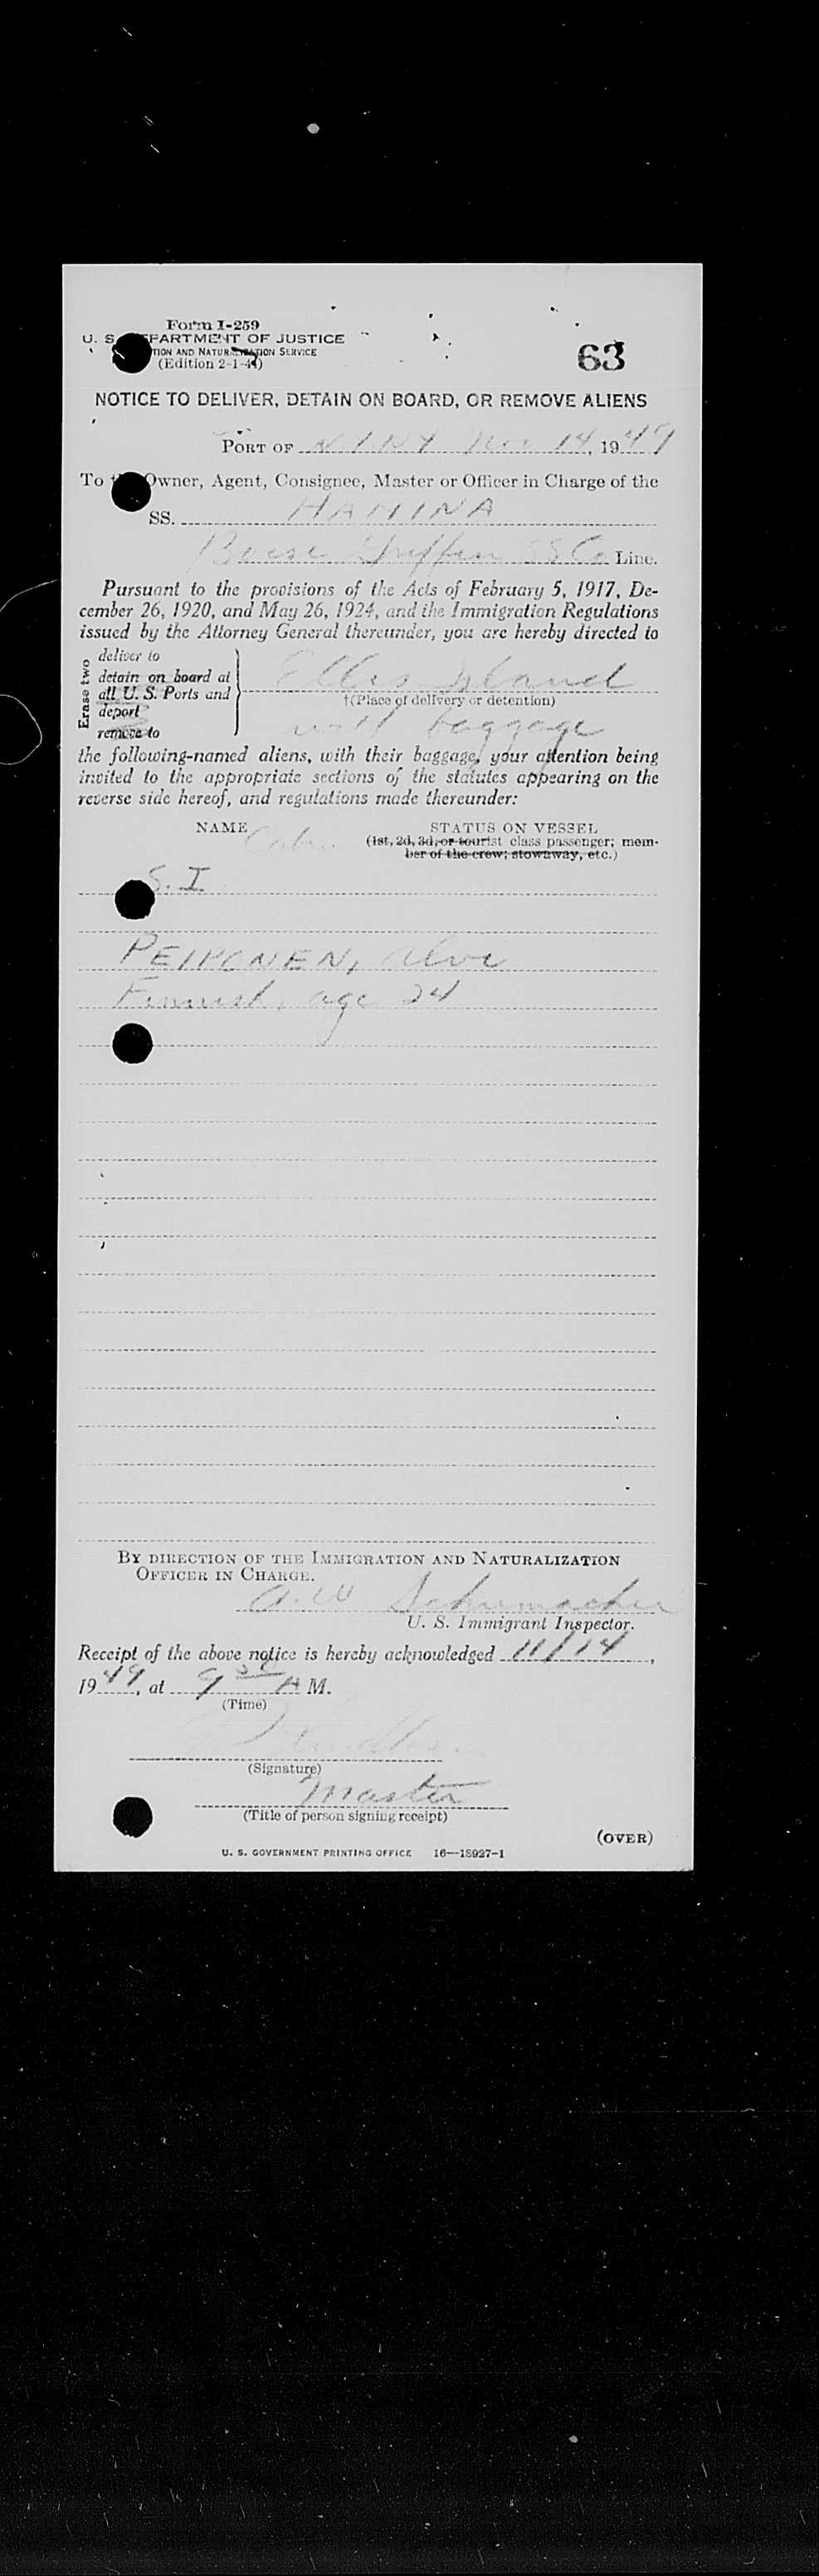 Form I-259
U. S. DEPARTMENT OF JUSTICE
TION AND NATURALIZATION SERVICE
(Edition 2-1-4)
63
NOTICE TO DELIVER, DETAIN ON BOARD, OR REMOVE ALIENS
PORT OF N.Y. N.Y. Nov 14, 1949
To the Owner, Agent, Consignee, Master or Officer in Charge of the
SS. HAMINA
Griffin SS Co Line.
Pursuant to the provisions of the Acts of February 5, 1917, De-
cember 26, 1920, and May 26, 1924, and the Immigration Regulations
issued by the Attorney General thereunder, you are hereby directed to
Erase two
deliver to
detain on board at
all U. S. Ports and
deport
remove to
Ellis Island
†(Place of delivery or detention)
with baggage
the following-named aliens, with their baggage, your attention being
invited to the appropriate sections of the statutes appearing on the
reverse side hereof, and regulations made thereunder:
NAME
STATUS ON VESSEL
(1st, 2d, 3d, or tourist class passenger; mem-
ber of the crew; stowaway, etc.)
S. I
PEIPONEN, Alve
Finnish, age 24
BY DIRECTION OF THE IMMIGRATION AND NATURALIZATION
OFFICER IN CHARGE.
A. W Schumacher
U. S. Immigrant Inspector.
Receipt of the above notice is hereby acknowledged 11/14,
1949, at 9 30 A M.
(Time)
(Signature)
Master
(Title of person signing receipt)
(OVER)
U. S. GOVERNMENT PRINTING OFFICE 16—18927-1